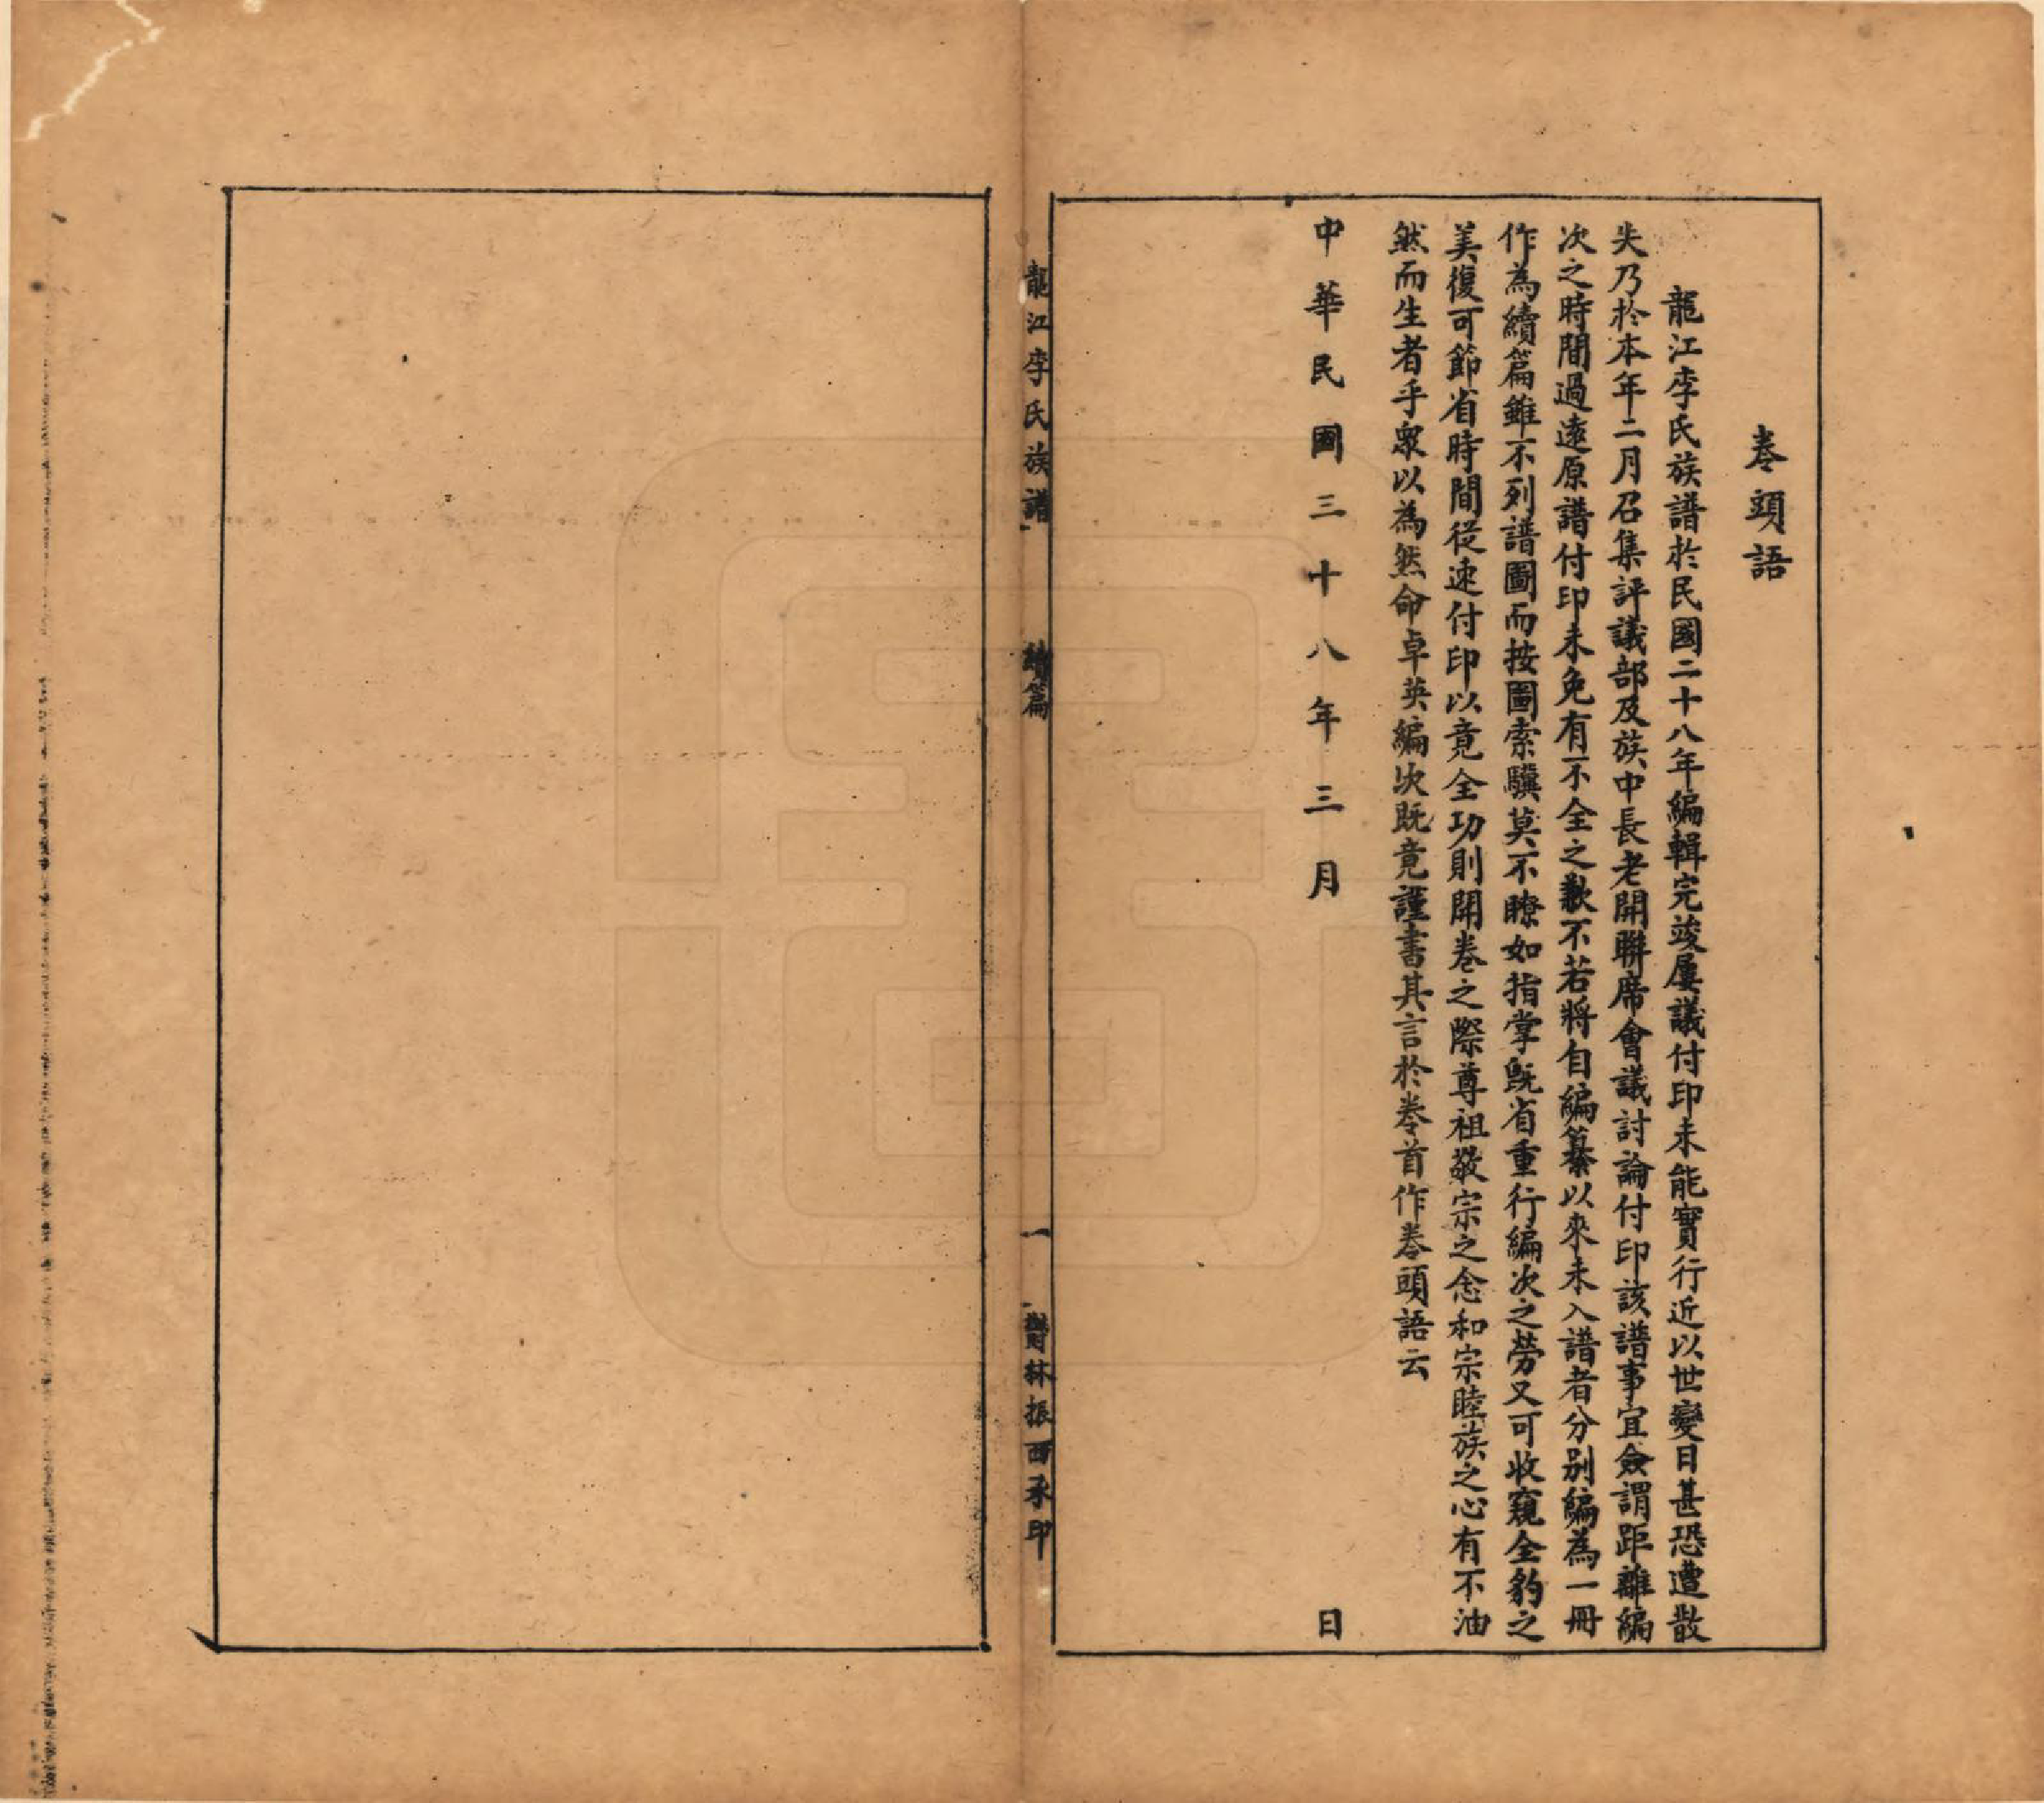 卷頭語
龍江李氏族譜於民國二十八年編輯完竣屢議付印未能實行近以世變日甚恐遭散
失乃於本年二月召集評議部及族中長老開聯席會議討論付印該譜事宜僉謂距離編
次之時間過遠原譜付印未免有不全之歉不若將自編纂以來未入譜者分別編為一冊
作為續篇雖不列譜圖而按圖索驥莫不瞭如指掌既省重行編次之勞又可收窺全豹之
美復可節省時間從速付印以竟全功則開卷之際尊祖敬宗之念和宗睦族之心有不油
然而生者乎眾以為然命卓英編次既竟謹書其言於卷首作卷頭語云
中華民國三十八年三月 日
龍江李氏族譜 續篇 一 林振西承印